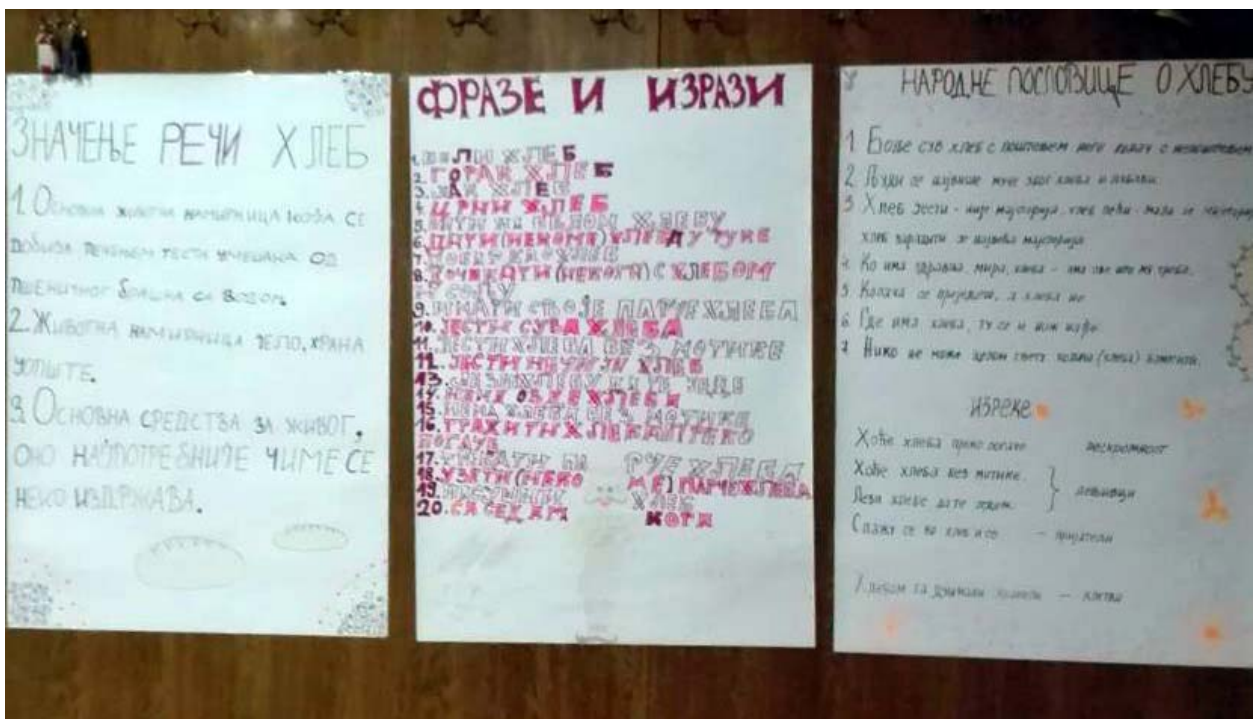 ЗНАЧЕЊЕ РЕЧИ ХЛЕБ
1. ОСНОВНА ЖИВОТНА НАМИРНИЦА КОЈА СЕ
ДОБИЈА ПЕЧЕЊЕМ ТЕСТА ОД
ПШЕНИЧНОГ БРАШНА СА ВОДОМ
2. ЖИВОТНА НАМИРНИЦА ЈЕЛО, ХРАНА
УОПШТЕ.
3. ОСНОВНА СРЕДСТВА ЗА ЖИВОТ,
ОНО НАЈПОТРЕБНИЈЕ ЧИМЕ СЕ
НЕКО ИЗДРЖАВА.
ФРАЗЕ И ИЗРАЗИ
1. ХЛЕБ
2. ГОРАК ХЛЕБ
3. ХЛЕБ
4. ЦРНИ ХЛЕБ
5. НА БЕЛОМ ХЛЕБУ
6. ДАТИ (НЕКОМЕ) ХЛЕБ У РУКЕ
7. ХЛЕБ
8. ДОЧЕКАТИ (НЕКОГА) С ХЛЕБОМ
9. ИМАТИ СВОЈЕ ПАРЧЕ ХЛЕБА
10. ЈЕСТИ СУВА ХЛЕБА
11. ЈЕСТИ ХЛЕБА БЕЗ МОТИКЕ
12. ЈЕСТИ ХЛЕБ
13. ХЛЕБУ ДА ТЕ ЈЕДЕ
14.
15. НЕМА ХЛЕБА БЕЗ МОТИКЕ
16. ТРАЖИТИ ХЛЕБА ПРЕКО
ПОГАЧЕ
17. ХЛЕБА
18. УЗЕТИ (НЕКОМЕ) ПАРЧЕ ХЛЕБА
19. ХЛЕБ
20. СА СЕДАМ КОРА
НАРОДНЕ ПОСЛОВИЦЕ О ХЛЕБУ
1. Боље сув хлеб с поштовањем него с непоштовањем
2. Људи се највише муче због хлеба и
3. Хлеб јести - није мајсторија, хлеб пећи -
хлеб зарадити је највећа мајсторија
4. Ко има здравља, мира, хлеба - има све што му треба.
5. Колача се преједеш, а хлеба не
6. Где има хлеба, ту се и нож нађе.
7. Нико не може целом свету колача (хлеба) намесити.
ИЗРЕКЕ
Хоће хлеба преко погаче нескромност
Хоће хлеба без мотике. } ленивци
Лези хлебе да те једем.
Слажу се ко хлеб и со - пријатељи
- клетва